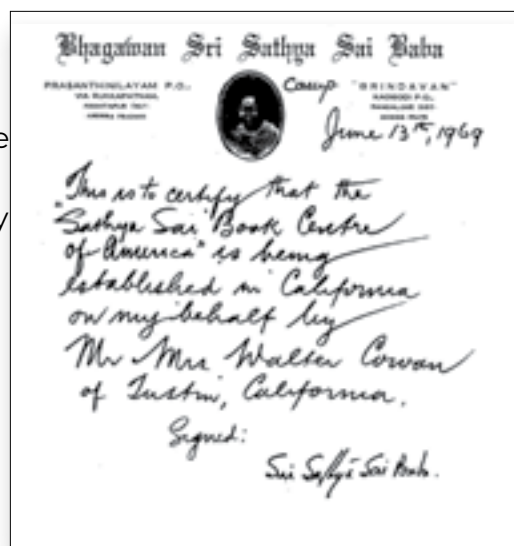 Bhagawan Sri Sathya Sai Baba
PRASANTHINILAYAM P.O.,
Camp
"BRINDAVAN"
June 13th, 1969
e
y
This is to certify that the
"Sathya Sai Book Centre
of America" is being
established in California
on my behalf by
Mr Mrs Walter Cowan
of Tustin, California.
Signed:
Sri Sathya Sai Baba.